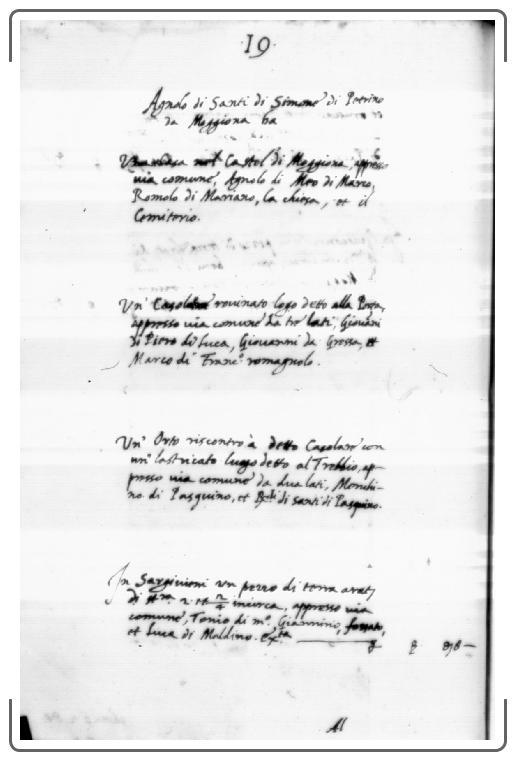 ·19·
Agnolo di Santi di Simone di Petrino
da Moggiona ha
Una casa nel Castel di Moggiona appresso
via comune, Agnolo di Meo di Marco,
Romolo di Mariano, la chiesa, et il
Cemiterio.
Un' Casolare rovinato logo detto alla Porta,
appresso via comune da tre lati, Giovanni
di Piero di Luca, Giovanni da Grossa, et
Marco di Franc.º romagnolo.
Un' Orto riscontro à detto Casolare con
un' lastricato luogo detto al Trebbio, ap-
presso via comune da dua lati, Menchi-
no di Pasquino, et di Santi di Pasquino.
In un pezzo di terra
di incirca, appresso via
comune, Tonio di m.º Giannino, fossato,
et Luca di Maldino.
Al